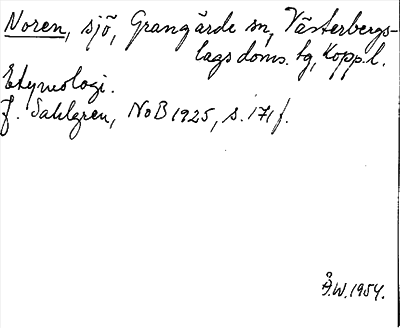 Noren, sjö, Grangärde sn, Västerbergs-
lags doms. tg, Kopp. l.
Etymologi.
J. Sahlgren, NoB 1925, s. 171 f.
Å.W. 1954.